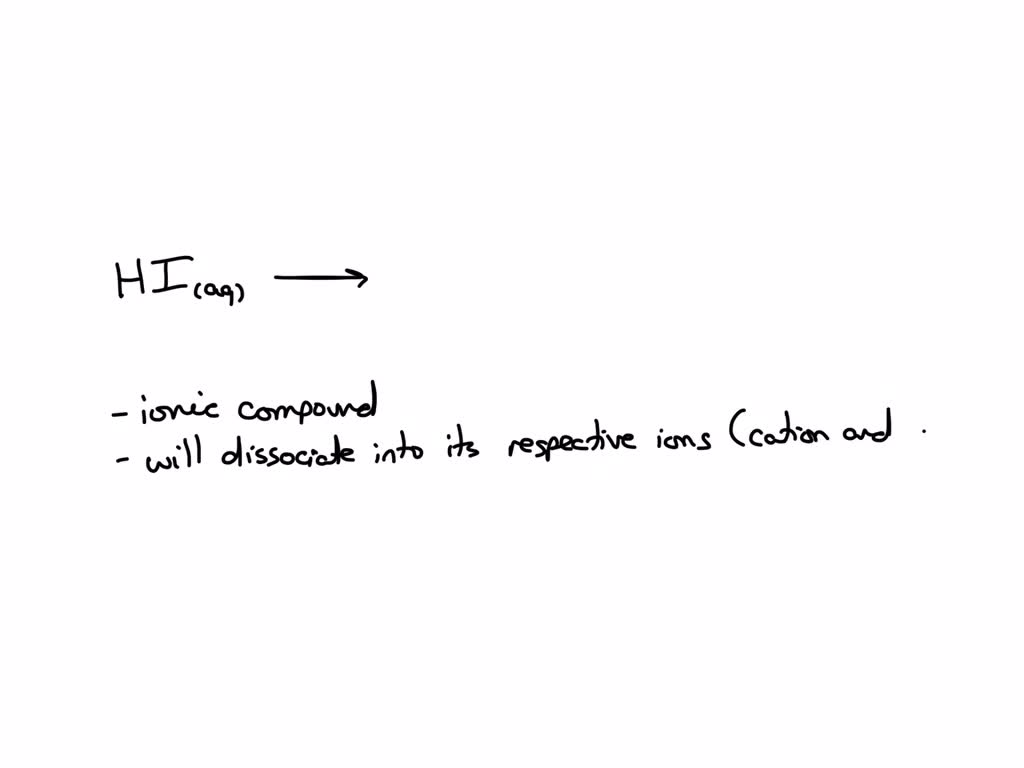 HI(aq) ⟶
- ionic compound
- will dissociate into its respective ions (cation and